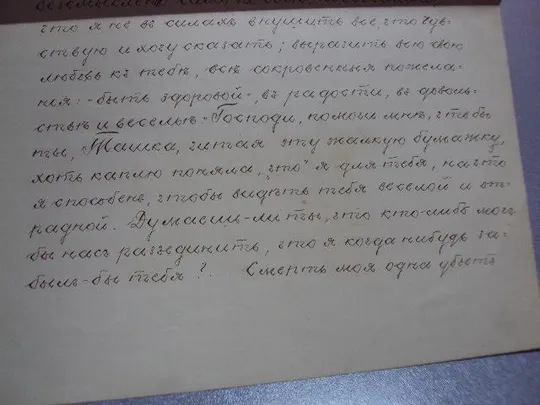 что я не въ силахъ внушить все что чув-
ствую и могу сказать; выразить всю свою
любовь къ тебѣ, всѣ сокровенныя пожела-
нія: - быть здоровой -, въ радости, въ доволь-
ствѣ и весельѣ - Господи, помоги мнѣ, чтобы
ты, Ташка, читая эту жалкую бумажку,
хоть каплю поняла, что я для тебя, на что
я способенъ, чтобы видѣть тебя веселой и от-
радной. Думаешь-ли ты, что кто-либо могъ
бы насъ разъединить, что я когда нибудь за-
былъ-бы тебя? Смерть моя одна убьетъ